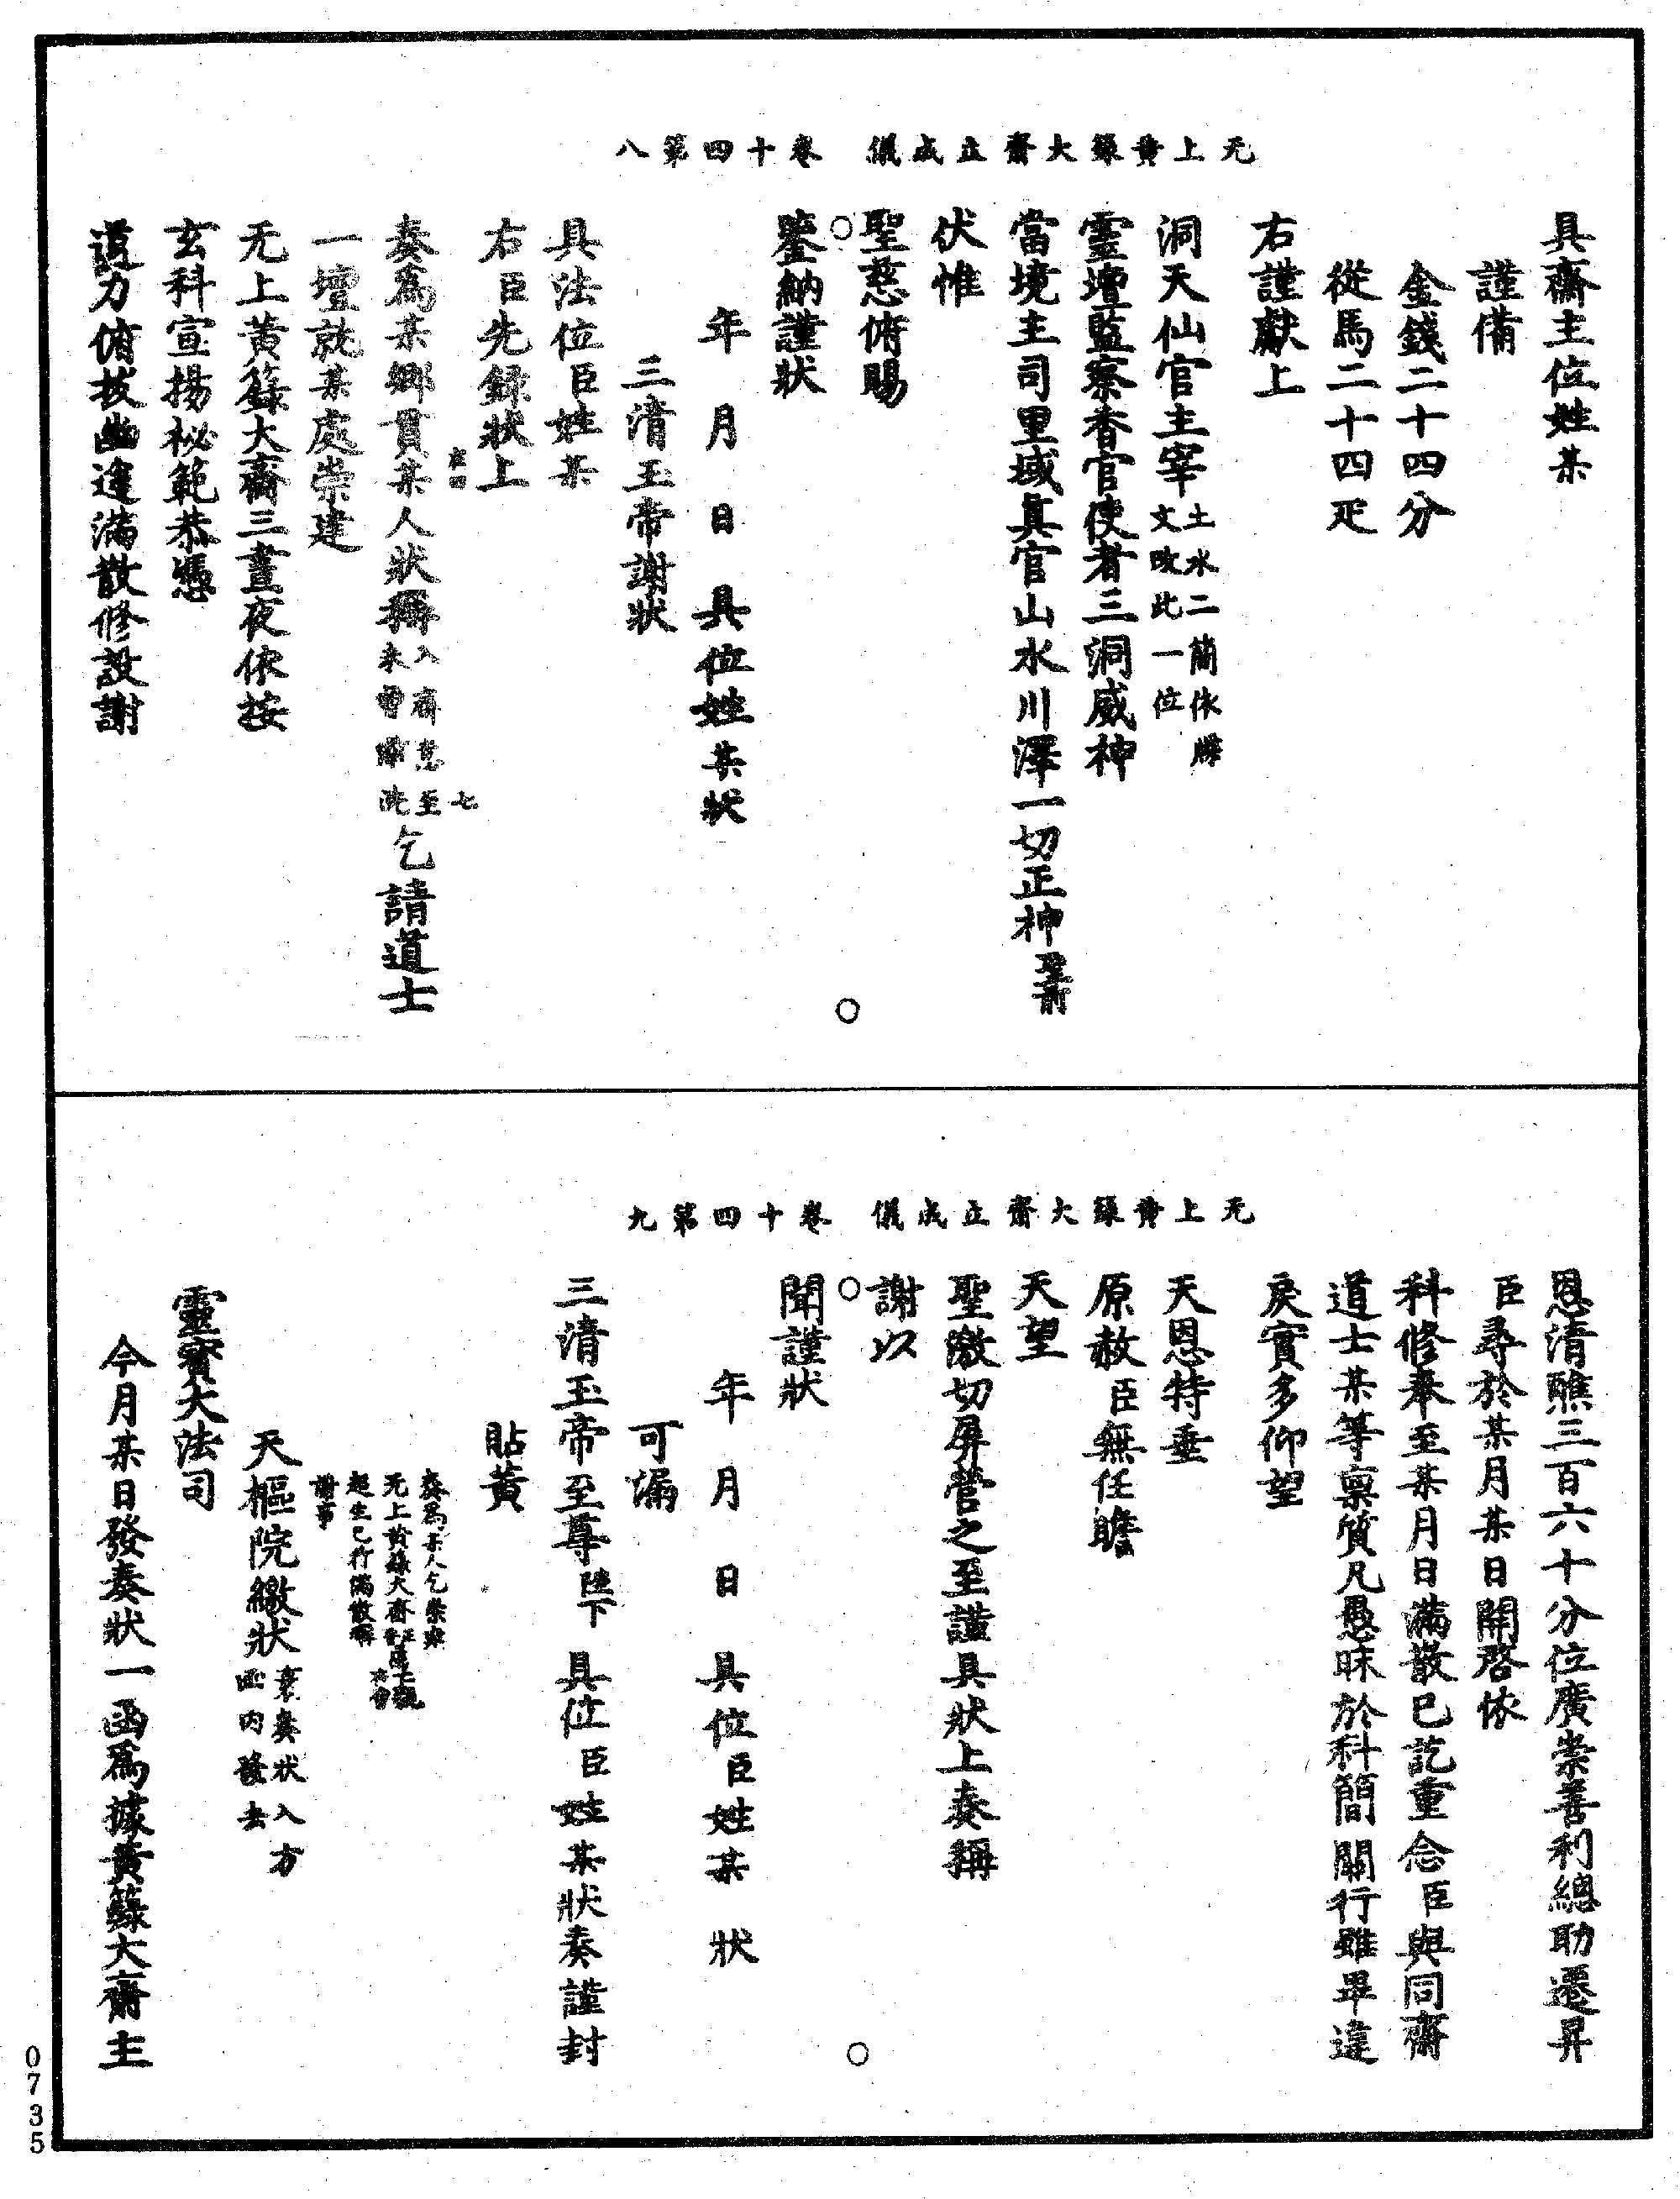 无上黃籙大齋立成儀　卷十四第八
具齋主位姓某
謹備
金錢二十四分
從馬二十四疋
右謹獻上
洞天仙官主宰土水二簡依牒文改此一位
靈壇監察香官使者三洞威神
當境主司里域真官山水川澤一切正神聖前
伏惟
聖慈俯賜
鑒納謹狀
年　月　日　具位姓某狀
三清玉帝謝狀
具法位臣姓某
右臣先錄狀上
奏為某鄉貫某人狀稱入齋意至乞請道士
一壇就某處崇建
无上黃籙大齋三晝夜依按
玄科宣揚祕範恭憑
道力俯拔幽逵滿散修設謝
无上黃籙大齋立成儀　卷十四第九
恩清醮三百六十分位廣崇善利總助遷昇
臣尋於某月某日開啓依
科修奉至某月日滿散已訖重念臣與同齋
道士某等稟質凡愚昧於科簡關行雖畢違
戾實多仰望
天恩特垂
原赦臣無任瞻
天望
聖激切屏營之至謹具狀上奏稱
謝以
聞謹狀
年　月　日　具位臣姓某　狀
可漏
三清玉帝至尊陛下　具位臣姓某狀奏謹封
貼黃
奏為某人乞崇建
无上黃籙大齋
起生已行滿散稱
謝事
天樞院繳狀裹奏狀入方函內發去
靈寶大法司
今月某日發奏狀一函為據黃籙大齋主
0735